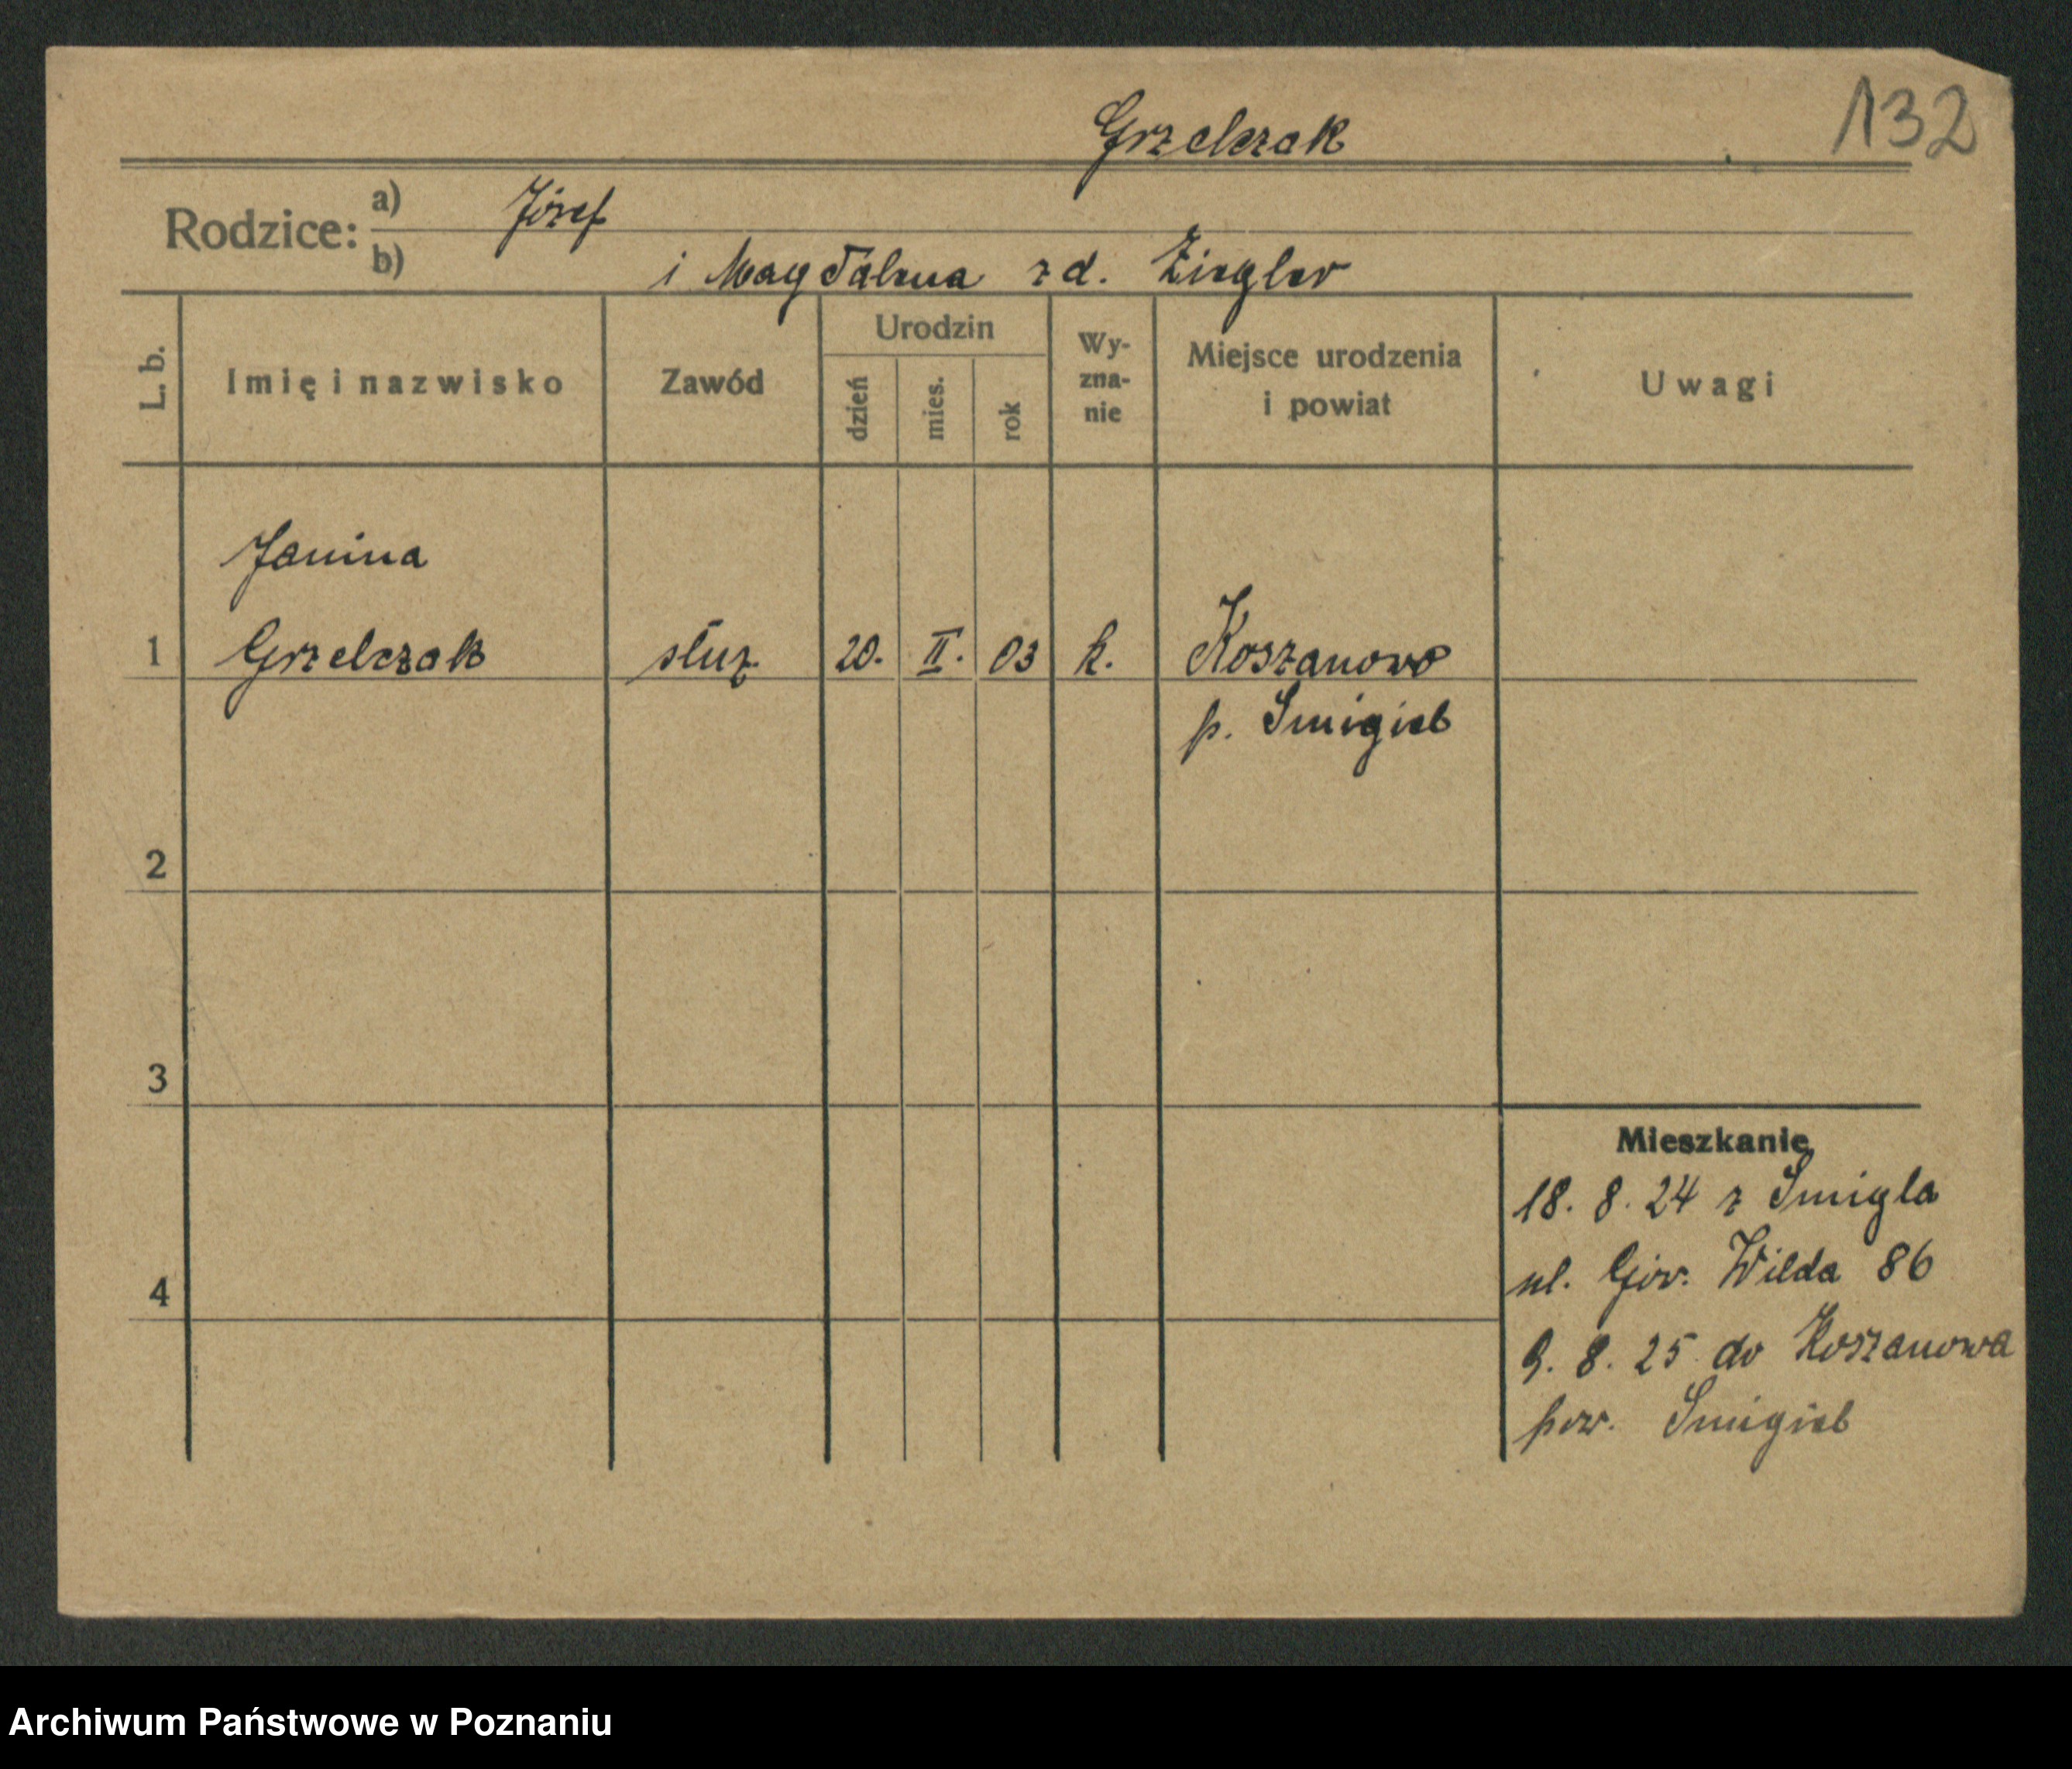 132
Grzelczak
Rodzice: a) Józef
b) i Magdalena z d. Ziegler
L. b. Imię i nazwisko Zawód Urodzin dzień mies. rok Wy-zna-nie Miejsce urodzenia i powiat Uwagi
Janina
1 Grzelczak służ. 20. II. 03 k. Koszanowo
p. Smigiel
2
3
4
Mieszkanie
18. 8. 24 z Smigla
ul. Gór. Wilda 86
9. 8. 25 do Koszanowa
pow. Smigiel
Archiwum Państwowe w Poznaniu